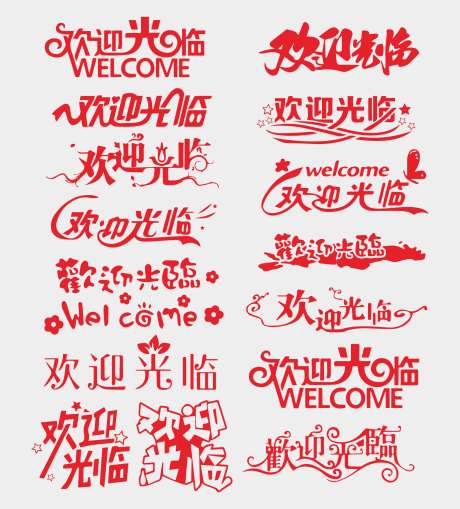 欢迎光临
WELCOME
欢迎光临
欢迎光临
欢迎光临
歡迎光臨
Welcome
欢迎光临
欢迎
光临
欢迎
光临
欢迎光临
欢迎光临
welcome
欢迎光临
歡迎光臨
欢迎光临
欢迎光临
WELCOME
歡迎光臨